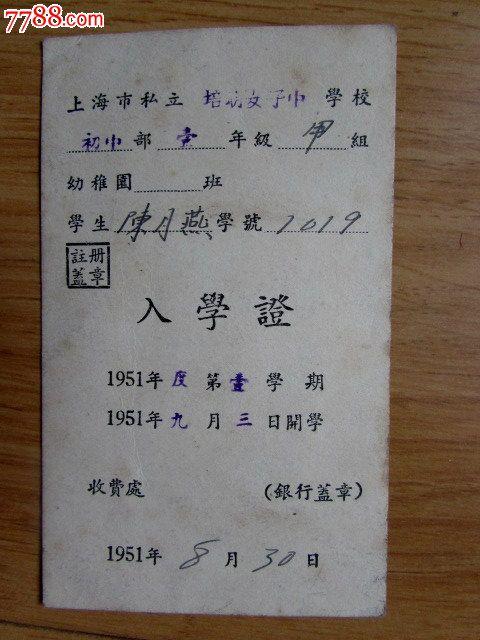 7788.com
上海市私立 培明女子中 學校
初中部 壹 年級 甲 組
幼稚園 班
學生 陳月燕 學號 1019
註册
蓋章
入學證
1951年度第壹學期
1951年九月三日開學
收費處 (銀行蓋章)
1951年 8月 30日